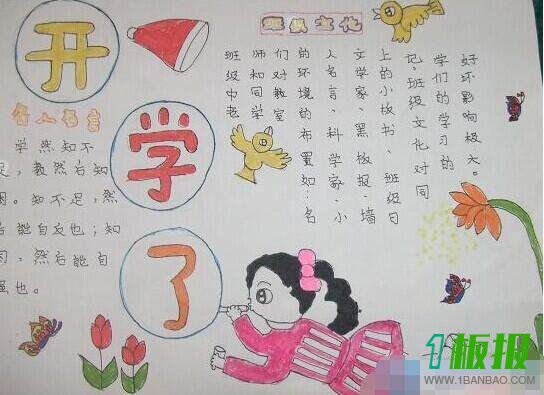 开
学
了
名人名言
学然知不
足，教然后知
困。知不足，然
后能自文也；知
困，然后能自
强也。
班级文化
班级中老
师和同学
们对教室
的环境的布置如：名
人名言、科学家、小
文学家、黑板报、墙
上的小板书、班级日
记，班级文化对同
学们的学习的
好坏影响极大。
1板报
WWW.1BANBAO.COM